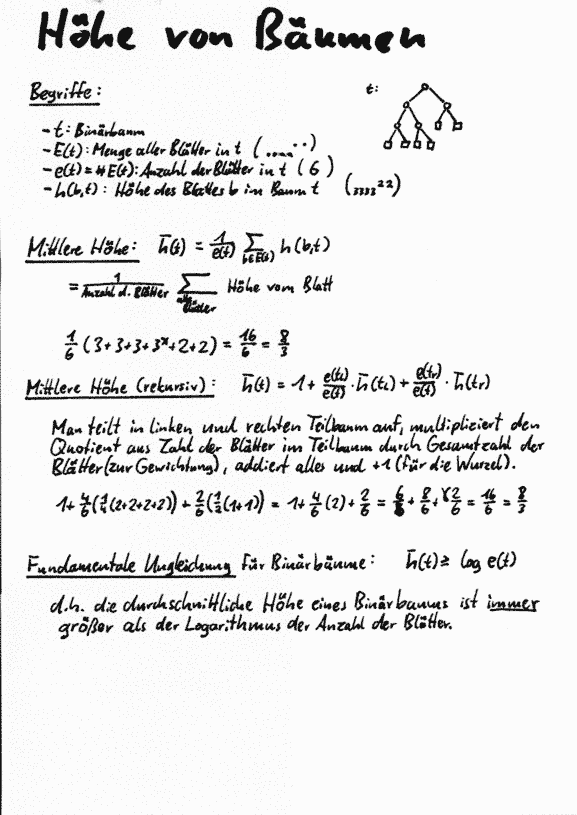 Höhe von Bäumen
Begriffe:
t:
- t: Binärbaum
- E(t): Menge aller Blätter in t (......)
- e(t) = #E(t): Anzahl der Blätter in t (6)
- h(b,t): Höhe des Blattes b im Baum t (333322)
Mittlere Höhe: h̄(t) = 1/e(t) ∑ b∈E(t) h(b,t)
= 1/Anzahl d. Blätter ∑ alle Blätter Höhe vom Blatt
1/6 (3+3+3+3+2+2) = 16/6 = 8/3
Mittlere Höhe (rekursiv): h̄(t) = 1 + e(tl)/e(t) · h̄(tl) + e(tr)/e(t) · h̄(tr)
Man teilt in linken und rechten Teilbaum auf, multipliziert den
Quotient aus Zahl der Blätter im Teilbaum durch Gesamtzahl der
Blätter (zur Gewichtung), addiert alles und +1 (für die Wurzel).
1+ 4/6 (1/4 (2+2+2+2)) + 2/6 (1/2 (1+1)) = 1+ 4/6 (2) + 2/6 = 6/6 + 8/6 + 2/6 = 16/6 = 8/3
Fundamentale Ungleichung für Binärbäume: h̄(t) ≥ log e(t)
d.h. die durchschnittliche Höhe eines Binärbaums ist immer
größer als der Logarithmus der Anzahl der Blätter.